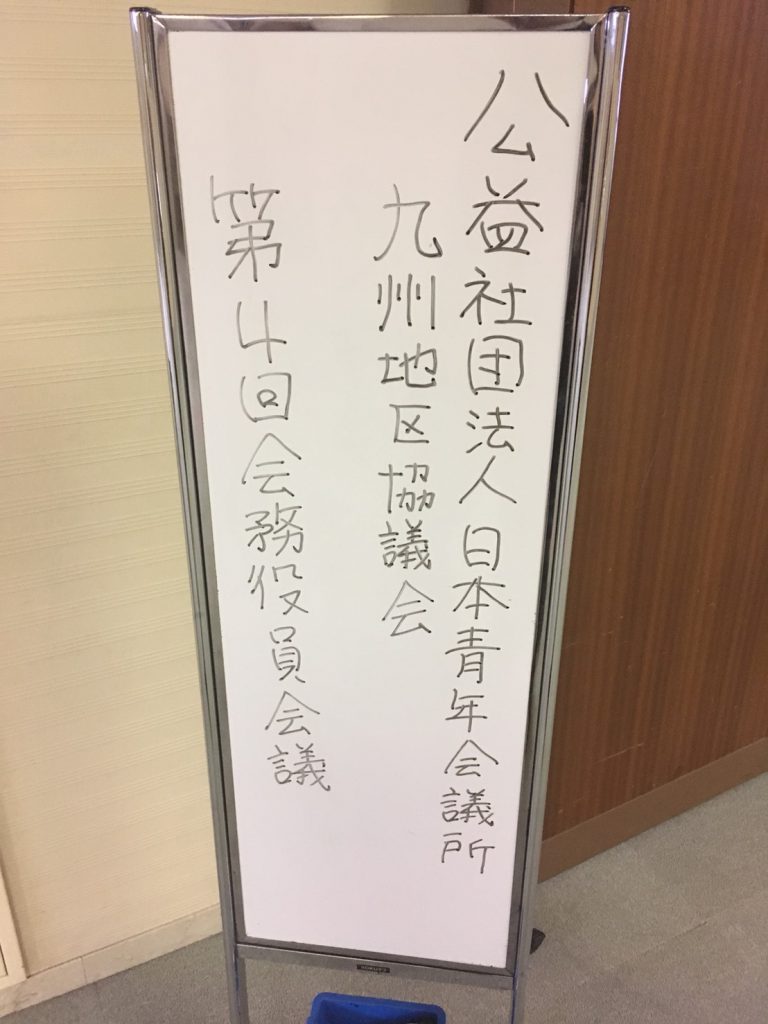 公益社団法人日本青年会議所
九州地区協議会
第4回会務役員会議